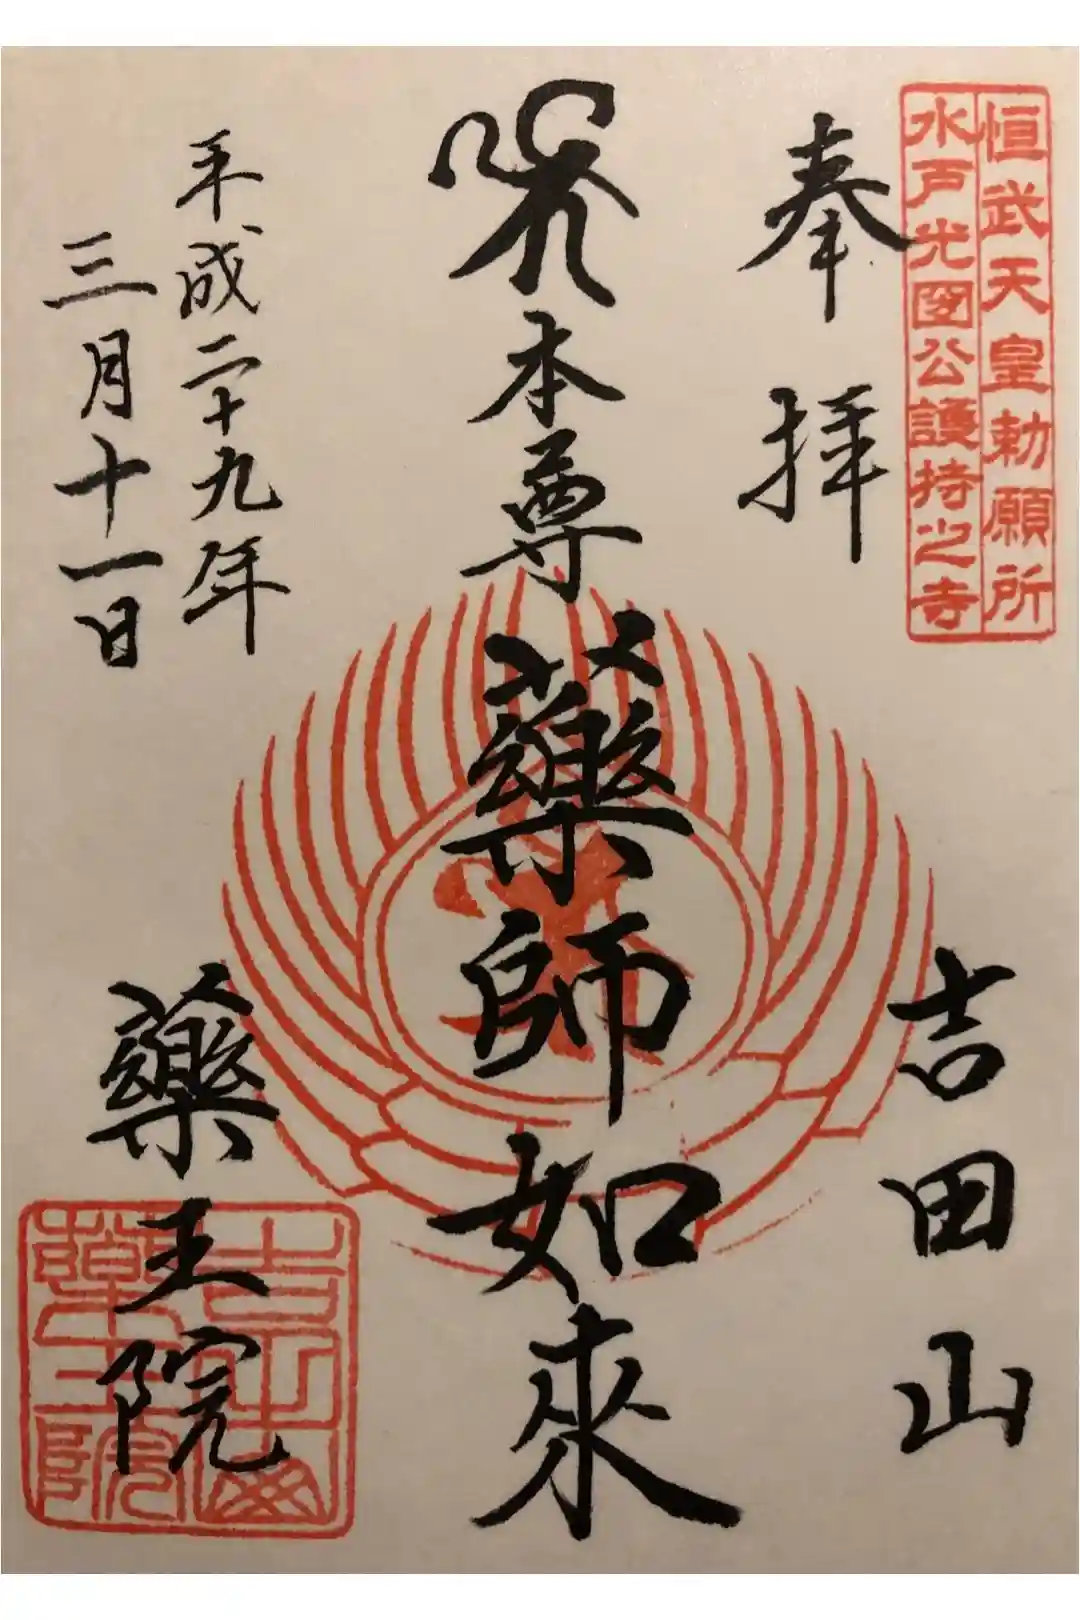 恒武天皇勅願所
水戸光圀公護持之寺
奉拝
吉田山
本尊薬師如來
平成二十九年
三月十一日
薬王院
吉田山
薬王院